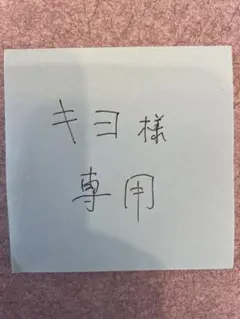 キヨ様
専用